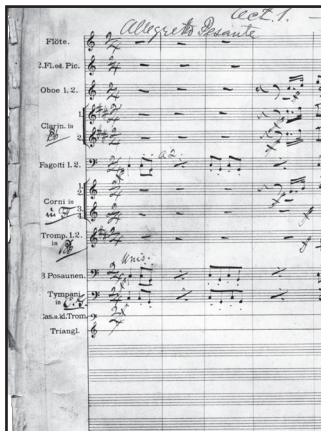 Act 1.
Allegretto Pesante
Flöte.
2.Fl.od. Pic.
Oboe 1. 2.
1.
Clarin. is
2.
Fagotti 1. 2.
a 2.
1.
2.
Corni is
in F
3.
4.
Tromp. 1. 2.
is
Unis.
3 Posaunen.
Tympani
is
Cas.u.kl.Trom.
Triangl.